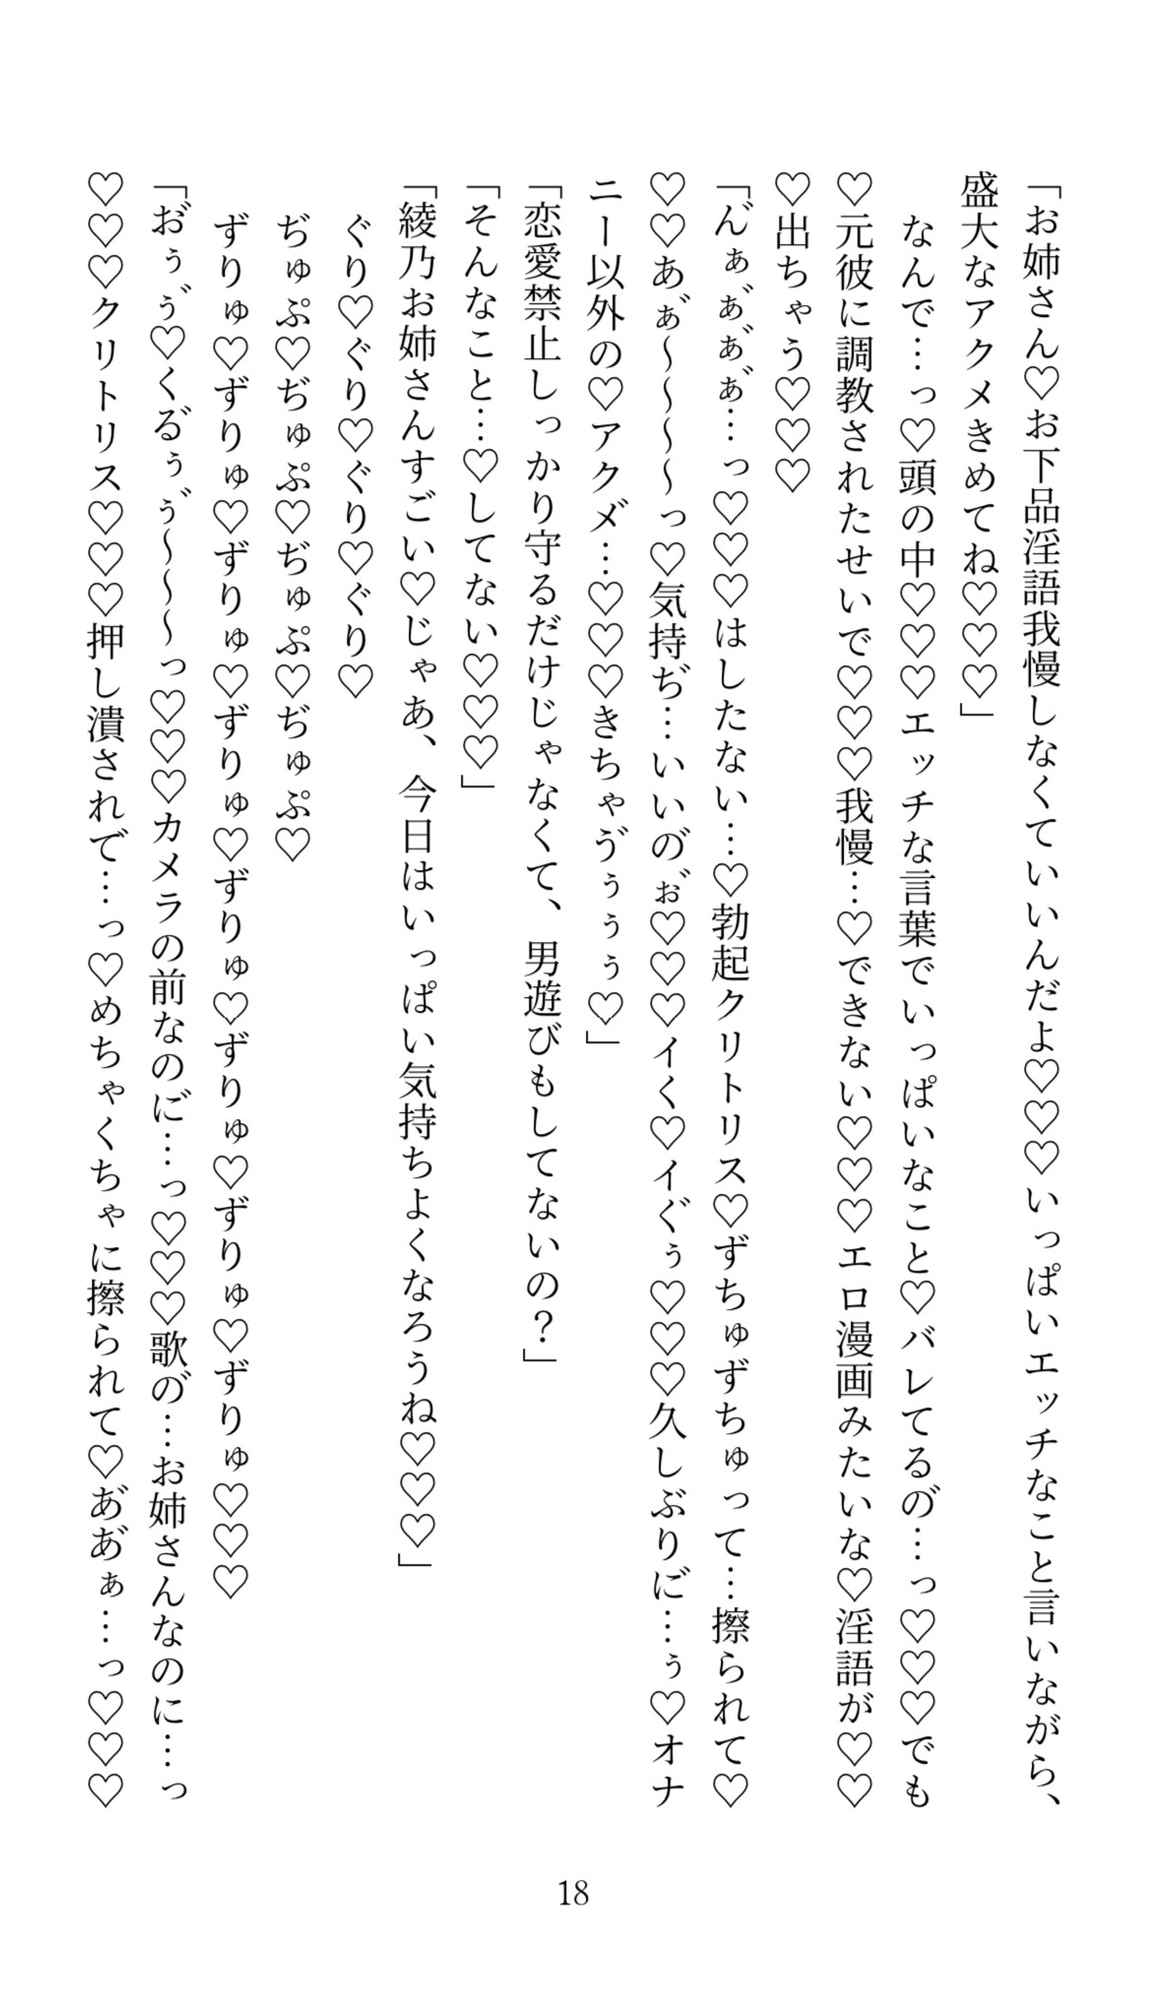 「お姉さん♡お下品淫語我慢しなくていいんだよ♡♡♡いっぱいエッチなこと言いながら、
盛大なアクメきめてね♡♡♡」
なんで…っ♡頭の中♡♡♡エッチな言葉でいっぱいなこと♡バレてるの゛…っ♡♡♡でも
♡元彼に調教されたせいで♡♡♡我慢…♡できない♡♡♡エロ漫画みたいな♡淫語が♡♡
♡出ちゃう♡♡♡
「ん゛ぁ、ぁ゛ぁ゛ぁ゛…っ♡♡♡はしたない…♡勃起クリトリス♡ずちゅずちゅって…擦られて♡
♡♡あぁ゛～～～～っ♡気持ぢ…いいの゛ぉ♡♡♡イく♡イぐぅ♡♡♡久しぶりに゛…ぅ♡オナ
ニー以外の♡アクメ゛…♡♡♡きちゃゔぅぅぅ♡」
「恋愛禁止しっかり守るだけじゃなくて、男遊びもしてないの？」
「そんなこと…♡してない♡♡♡」
「綾乃お姉さんすごい♡じゃあ、今日はいっぱい気持ちよくなろうね♡♡♡」
ぐり♡ぐり♡ぐり♡ぐり♡
ぢゅぷ♡ぢゅぷ♡ぢゅぷ♡ぢゅぷ♡
ずりゅ♡ずりゅ♡ずりゅ♡ずりゅ♡ずりゅ♡ずりゅ♡ずりゅ♡ずりゅ♡♡♡
「お゛ぅぅ゛♡くる゛ぅぅ゛～～～っ♡♡♡カメラの前なのに゛…っ♡♡♡歌の゛…お姉さんなのに…っ
♡♡♡クリトリス♡♡♡押し潰されで…っ♡めちゃくちゃに擦られて♡あ゛あ゛ぁ…っ♡♡♡
18